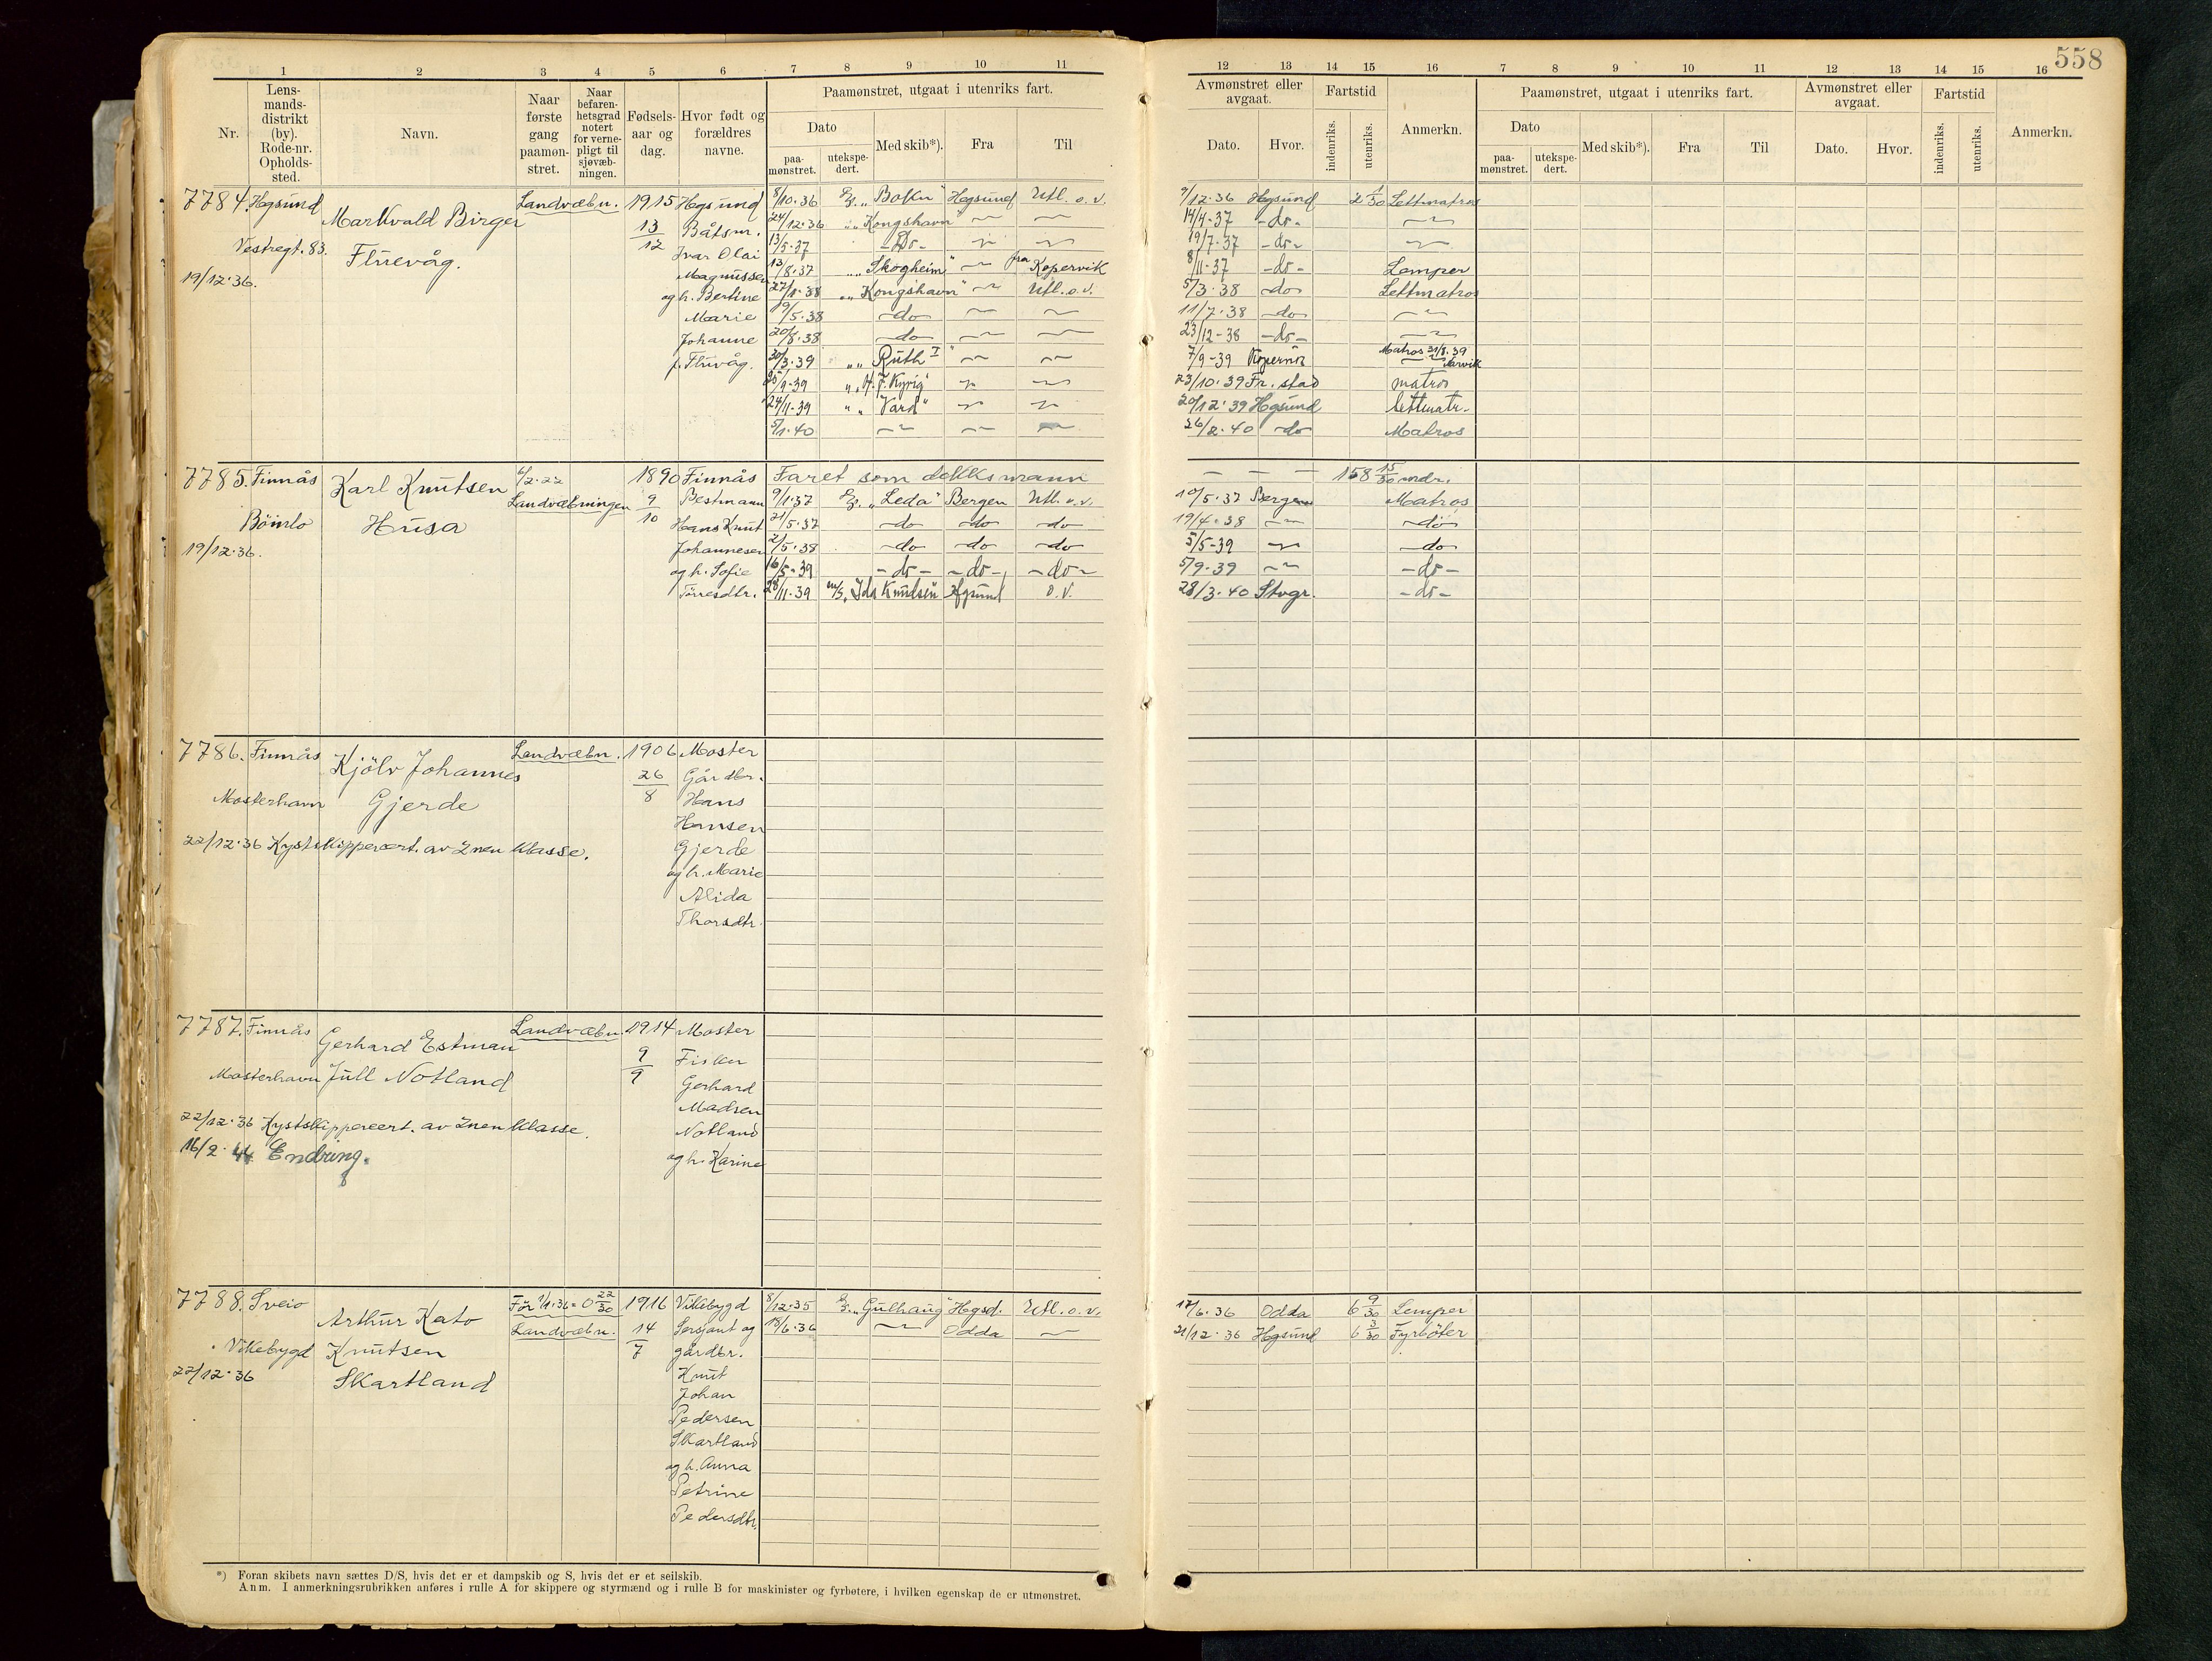 558
1 2 3 4 5 6 7 8 9 10 11
12 13 14 15 16 7 8 9 10 11 12 13 14 15 16
Nr.
Lens-
mands-
distrikt
(by).
Rode-nr.
Opholds-
sted.
Navn.
Naar
første
gang
paamøn-
stret.
Naar
befaren-
hetsgrad
notert
for verne-
pligt til
sjøvæb-
ningen.
Fødsels-
aar og
dag.
Hvor født og
forældres
navne.
Paamønstret, utgaat i utenriks fart.
Dato
paa-
mønstret.
utekspe-
dert.
Med skib*).
Fra
Til
Avmønstret eller
avgaat.
Dato.
Hvor.
Fartstid
indenriks.
utenriks.
Anmerkn.
Paamønstret, utgaat i utenriks fart.
Dato
paa-
mønstret.
utekspe-
dert.
Med skib*).
Fra
Til
Avmønstret eller
avgaat.
Dato.
Hvor.
Fartstid
indenriks.
utenriks.
Anmerkn.
7784. Hgsund
Vestregt. 83.
19/12.36.
Markvald Birger
Fluevåg.
Landvæbn.
1915
13/12
Hgsund
Båtsm.
Ivar Olai
Magnussen
og h. Bertine
Marie
Johanne
f. Fluevåg.
8/10.36 "Bokn" Hgsund Utl. o.v. 9/12.36 Hgsund 2 1/30 Lettmatros
24/12.36 "Kongshavn" 14/4-37 -do-
13/5-37 -do- 19/7-37 -do-
13/8-37 "Skogheim" fra Kopervik 8/11-37 -do- Lemper
27/1.38 "Kongshavn" Utl.o.v. 5/3.38 -do- Lettmatros
9/5.38 -do- 11/7.38 -do-
20/8.38 -do- 23/12-38 -do-
30/3.39 "Ruth I" 7/9-39 Matros 31/8.39
Narvik
/9-39 23/10.39 Fr.stad matros
24/11-39 "Vard" 20/12.39 Hgsund lettmatr.
5/1.40 26/2.40 -do- Matros
7785. Finnås
Bömlo
19/12.36.
Karl Knutsen
Husa
6/2.22
Landvæbningen
1890
9/10
Finnås
Bestmann
Hans Knut
Johannesen
og h. Sofie
Torresdtr.
Faret som dekksmann - - - 158 15/30 mdr.
9/1.37 "Leda" Bergen Utl. o.v. 10/5.37 Bergen Matros
21/5.37 -do- -do- -do- 19/4-38 -do-
2/5.38 -do- -do- -do- 5/5-39 -do-
16/5-39 -do- -do- -do- 5/9-39 -do-
28/11-39 m/s. Ida Knudsen Hgsund o.v. 28/3.40 Stvgr. -do-
7786. Finnås
Mosterhavn
22/12.36 Kystskippercert. av 2nen klasse.
Kjölv Johannes
Gjerde
Landvæbn.
1906
26/8
Moster
Gårdbr.
Hans
Hansen
Gjerde
og h. Marie
Alida
Thorsdtr.
7787. Finnås
Mosterhavn
22/12.36 Kystskippercert. av 2nen klasse.
16/2.44 Endring.
Gerhard Estman
Jull Notland
Landvæbn.
1914
9/9
Moster
Fisker
Gerhard
Madsen
Notland
og h. Karine
7788. Sveio
Vikebygd
22/12.36
Arthur Kato
Knutsen
Skartland
Før 1/1.36 = 0 22/30
Landvæbn.
1916
14/7
Vikebygd
Sersjant og
gårdbr.
Knut
Johan
Pedersen
Skartland
og h. Anna
Petrine
Pedersdtr.
8/12.35 "Gulhaug" Hgsd. Utl. o.v. 17/6.36 Odda 6 9/30 Lemper
18/6.36 Odda 21/12.36 Hgsund 6 3/30 Fyrböter
*) Foran skibets navn sættes D/S, hvis det er et dampskib og S, hvis det er et seilskib.
Anm. I anmerkningsrubrikken anføres i rulle A for skippere og styrmænd og i rulle B for maskinister og fyrbøtere, i hvilken egenskap de er utmønstret.